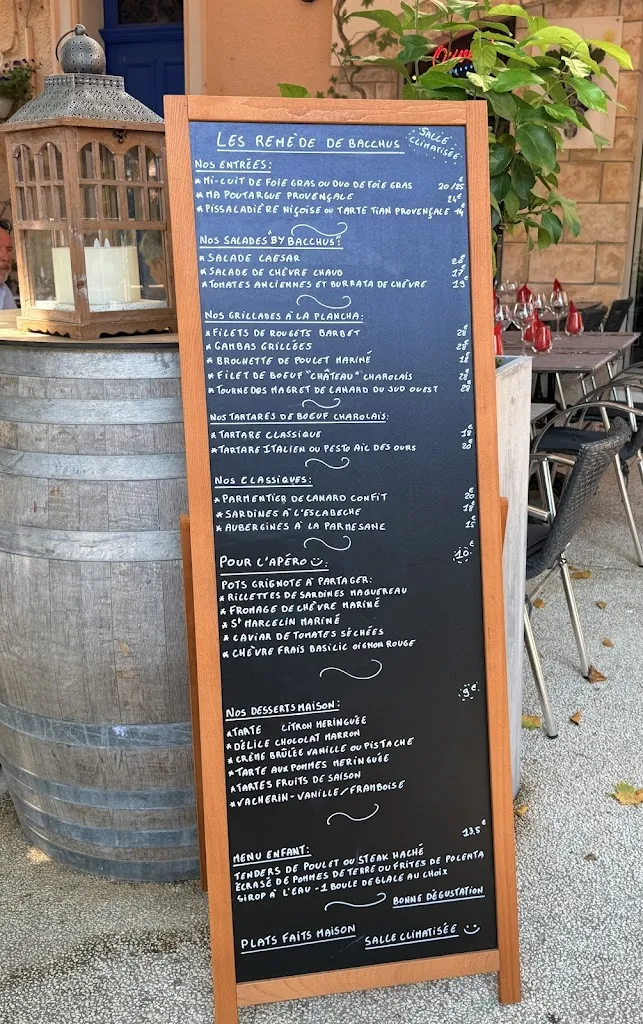 LES REMÈDE DE BACCHUS
SALLE CLIMATISÉE
NOS ENTRÉES:
* MI-CUIT DE FOIE GRAS OU DUO DE FOIE GRAS 20/25€
* MA POUTARGUE PROVENÇALE 24€
* PISSALADIÈRE NIÇOISE OU TARTE TIAN PROVENÇALE 14
NOS SALADES "BY BACCHUS":
* SALADE CAESAR
* SALADE DE CHÈVRE CHAUD 17€
* TOMATES ANCIENNES ET BURRATA DE CHÈVRE 19€
NOS GRILLADES À LA PLANCHA:
* FILETS DE ROUGETS BARBET 28€
* GAMBAS GRILLÉES 28€
* BROCHETTE DE POULET MARINÉ 18€
* FILET DE BOEUF "CHÂTEAU" CHAROLAIS 28€
* TOURNEDOS MAGRET DE CANARD DU SUD OUEST
NOS TARTARES DE BOEUF CHAROLAIS:
* TARTARE CLASSIQUE 18€
* TARTARE ITALIEN OU PESTO AIL DES OURS 20€
NOS CLASSIQUES:
* PARMENTIER DE CANARD CONFIT 20€
* SARDINES À L'ESCABECHE 18€
* AUBERGINES À LA PARMESANE
POUR L'APÉRO 10€
POTS GRIGNOTE À PARTAGER:
* RILLETTES DE SARDINES MAQUEREAU
* FROMAGE DE CHÈVRE MARINÉ
* ST MARCELIN MARINÉ
* CAVIAR DE TOMATES SÉCHÉES
* CHÈVRE FRAIS BASILIC OIGNON ROUGE
NOS DESSERTS MAISON: 9€
* TARTE CITRON MERINGUÉE
* DÉLICE CHOCOLAT MARRON
* CRÈME BRÛLÉE VANILLE OU PISTACHE
* TARTE AUX POMMES MERINGUÉE
* TARTES FRUITS DE SAISON
* VACHERIN - VANILLE/FRAMBOISE
MENU ENFANT: 13,5€
TENDERS DE POULET OU STEAK HACHÉ
ÉCRASÉ DE POMMES DE TERRE OU FRITES DE POLENTA
SIROP À L'EAU - 1 BOULE DE GLACE AU CHOIX
BONNE DÉGUSTATION
PLATS FAITS MAISON
SALLE CLIMATISÉE